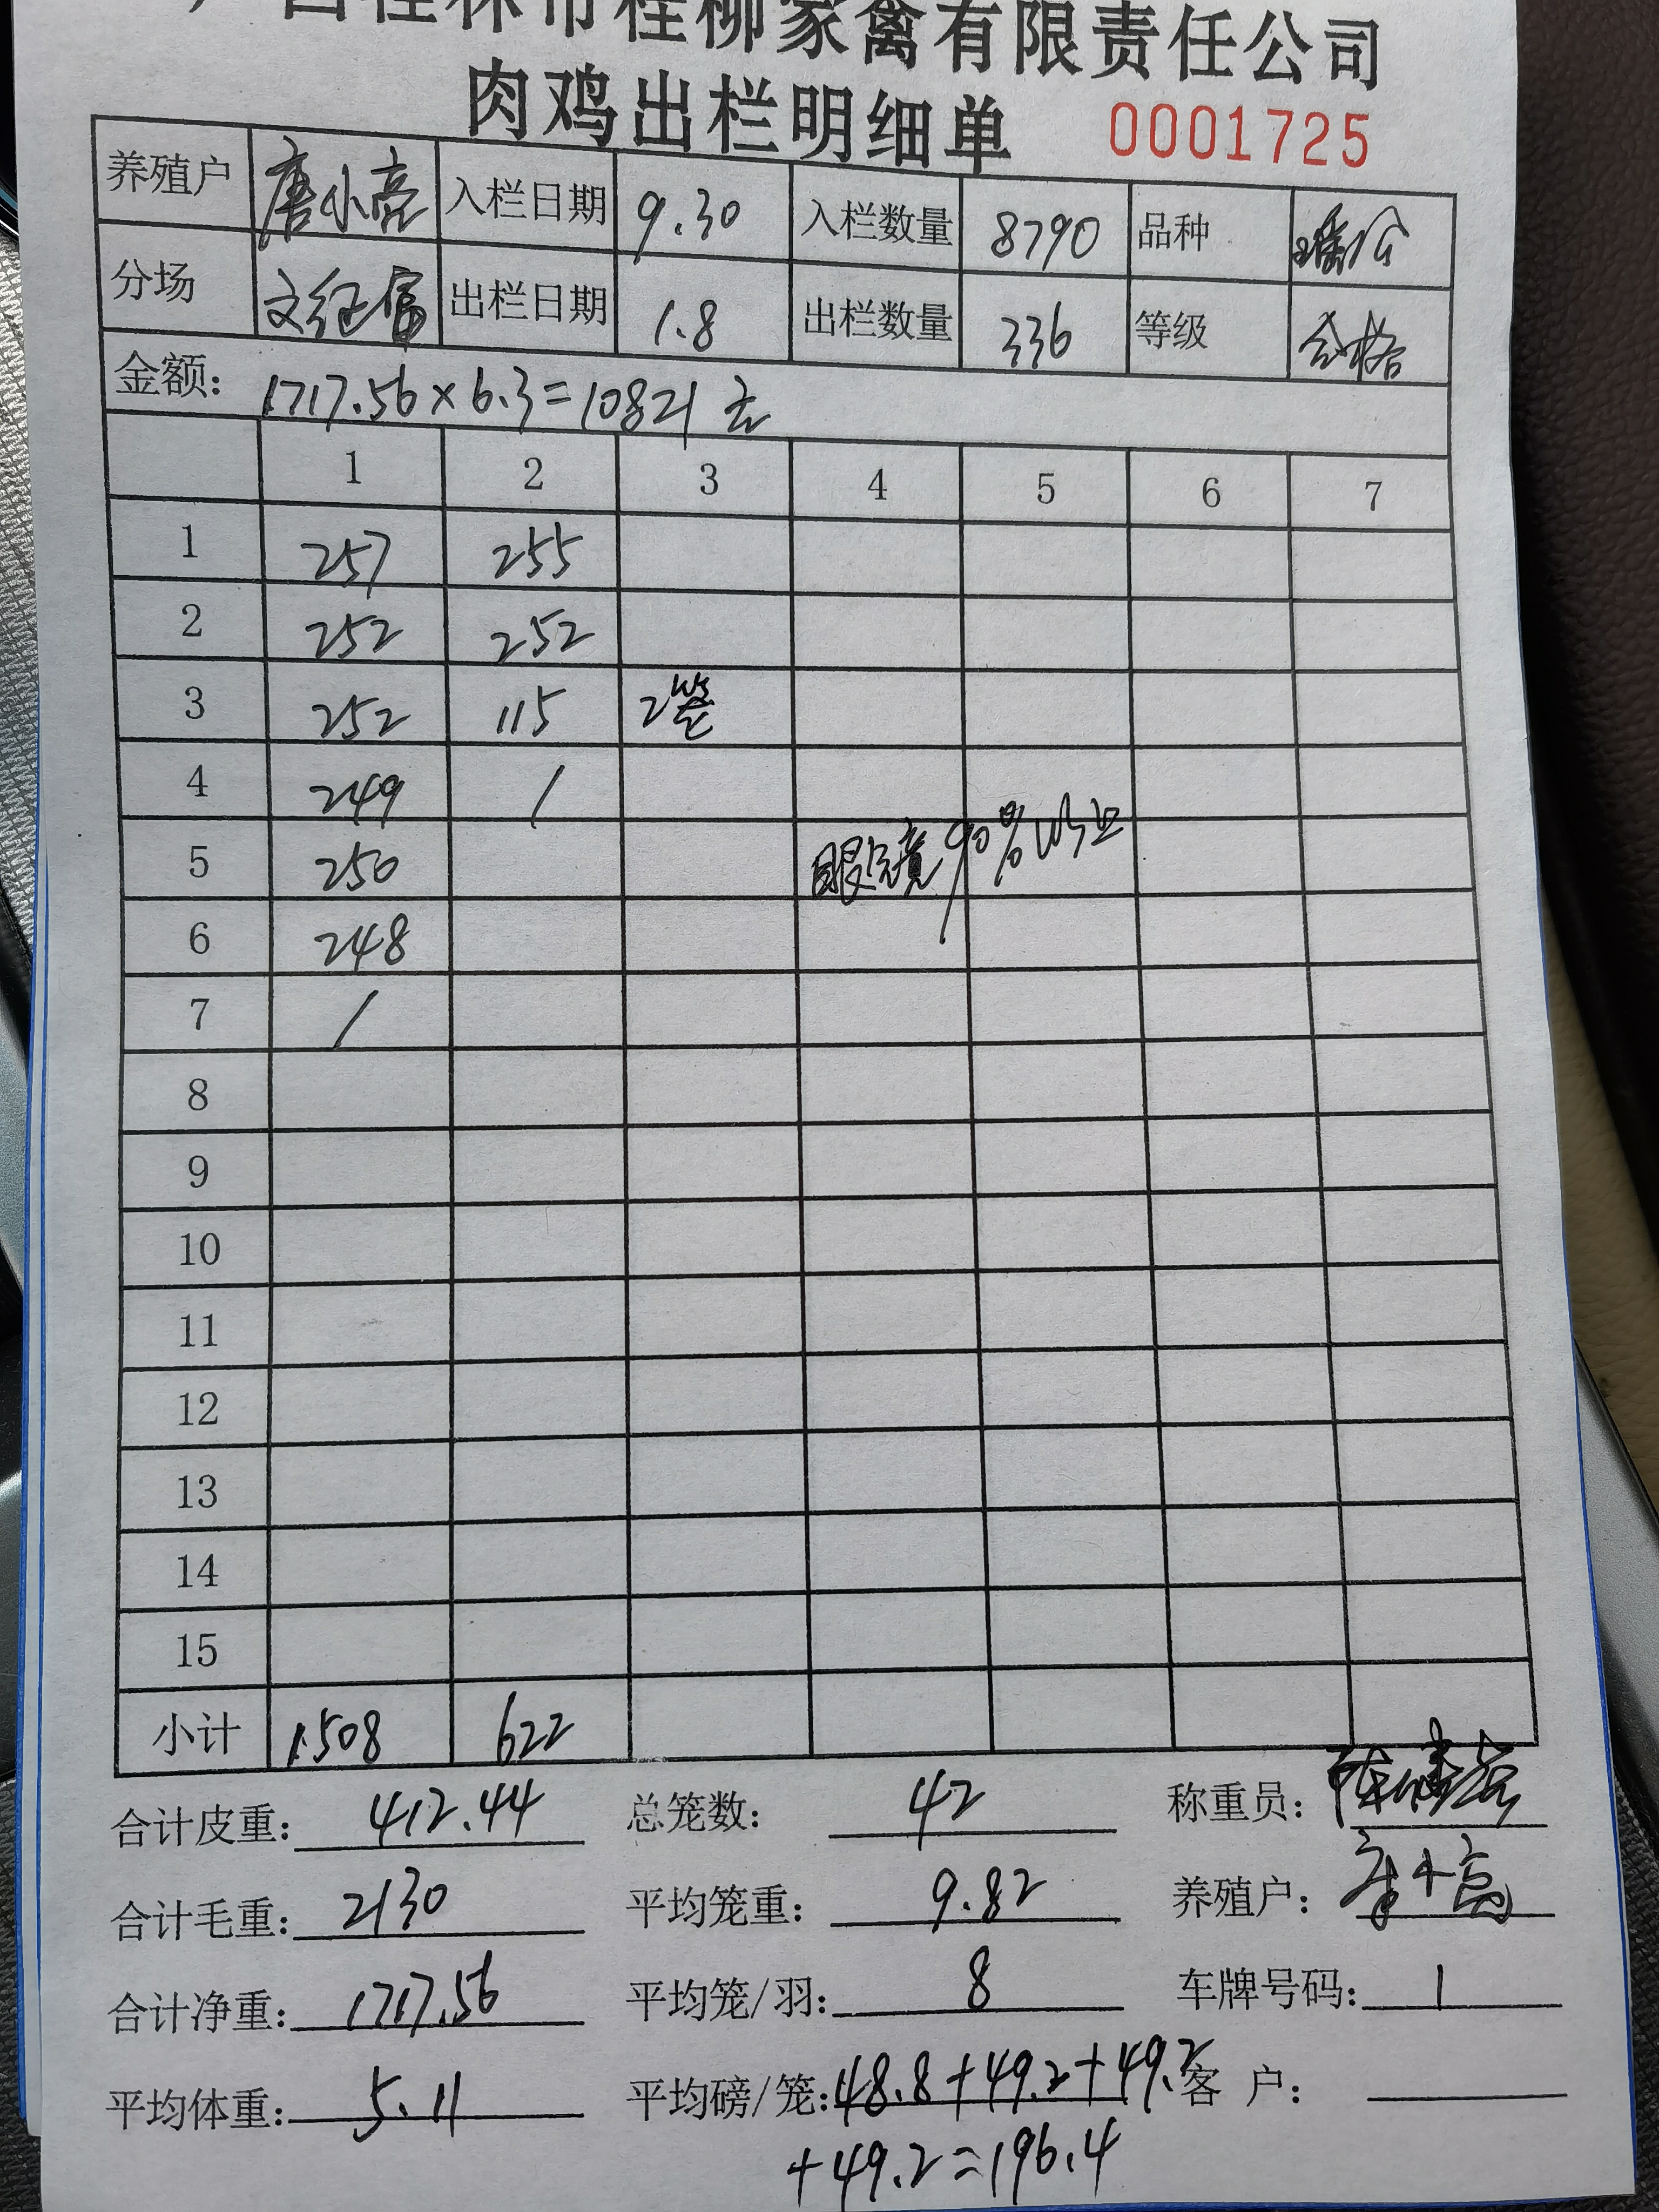 广西桂林市桂柳家禽有限责任公司
肉鸡出栏明细单 0001725
养殖户 唐小亮 入栏日期 9.30 入栏数量 8790 品种 瑶公
分场 文红富 出栏日期 1.8 出栏数量 336 等级 合格
金额: 1717.56×6.3=10821元
1 2 3 4 5 6 7
1 257 255
2 252 252
3 252 115 2笼
4 249 /
5 250 眼镜90%以上
6 248
7 /
8
9
10
11
12
13
14
15
小计 1508 622
合计皮重: 412.44 总笼数: 42 称重员:
合计毛重: 2130 平均笼重: 9.82 养殖户: 唐小亮
合计净重: 1717.56 平均笼/羽: 8 车牌号码: 1
平均体重: 5.11 平均磅/笼: 48.8+49.2+49.2 客户:
+49.2=196.4